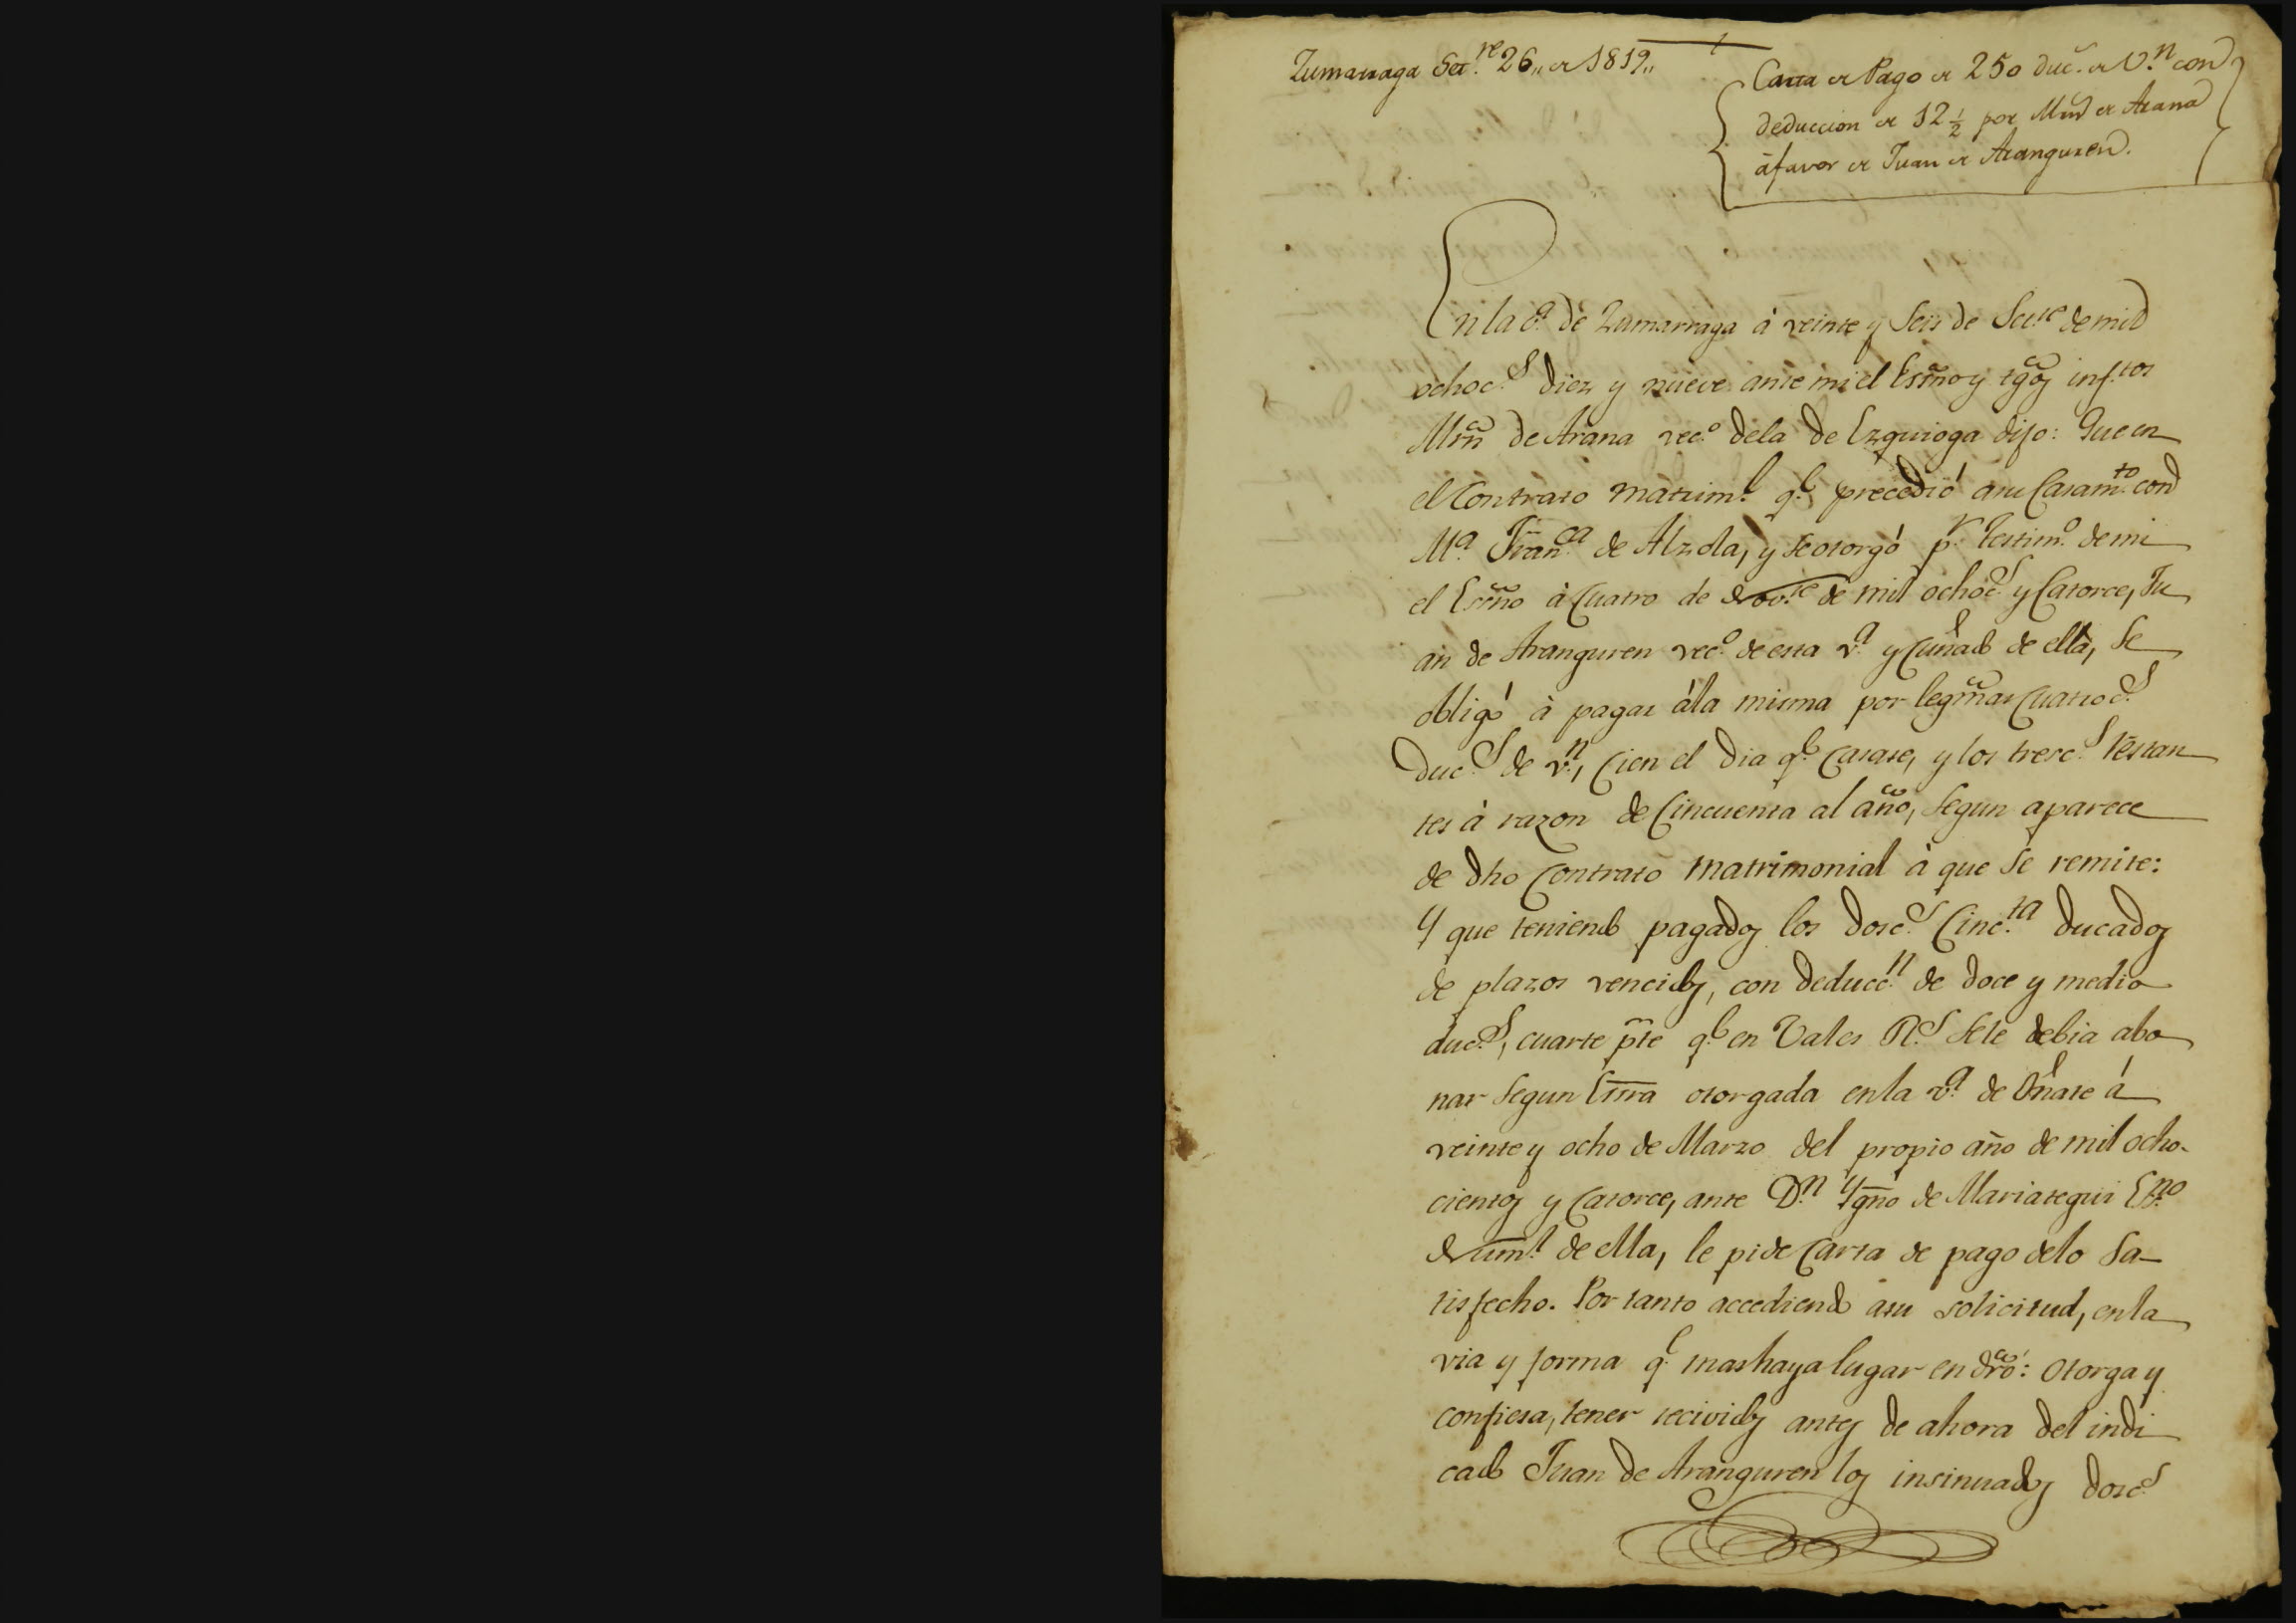 Zumarraga Set.re 26,, de 1819,,
Carta de Pago de 250 duc.s de V.n con
deduccion de 12 1/2 por Mrn de Arana
á favor de Juan de Aranguren.
En la v.a de Zumarraga à veinte y seis de Set.re de mil
ochoc.s diez y nueve ante mi el Essno y tgõs inf.tos
Mrñ de Arana vec.o dela de Ezquioga dijo: Que en
el Contrato matrim.l q.e precedió asu Casam.to con
M.a Fran.ca de Alzola, y se otorgó p.r Testim.o de mi
el Essño à Cuatro de Nov.re de mil ochoc.s y Catorce, Ju
an de Aranguren vec.o de esta v.a y Cuñado de ella, se
obligó à pagar ála misma por legmãs Cuatroc.s
Duc.s de v.n, Cien el dia q.e Casase, y los tresc.s restan
tes à razon de Cincuenta al año, segun aparece
de dho Contrato matrimonial à que se remite:
Y que teniendo pagados los dosc.s Cinc.ta ducados
de plazos vencidos, con deducc.n de doce y medio
duc.s, cuarte pte q.e en Vales R.s sele debia abo
nar segun Essra otorgada enla v.a de Oñate á
veinte y ocho de Marzo del propio año de mil ocho-
cientos y Catorce, ante D.n Ygño de Mariategui Ess.no
Num.l de ella, le pide Carta de pago delo sa-
tisfecho. Por tanto accediendo asu solicitud, enla
via y forma q.e mas haya lugar en dro: Otorga y
confiesa, tener recividos antes de ahora del indi
cado Juan de Aranguren los insinuados dosc.s